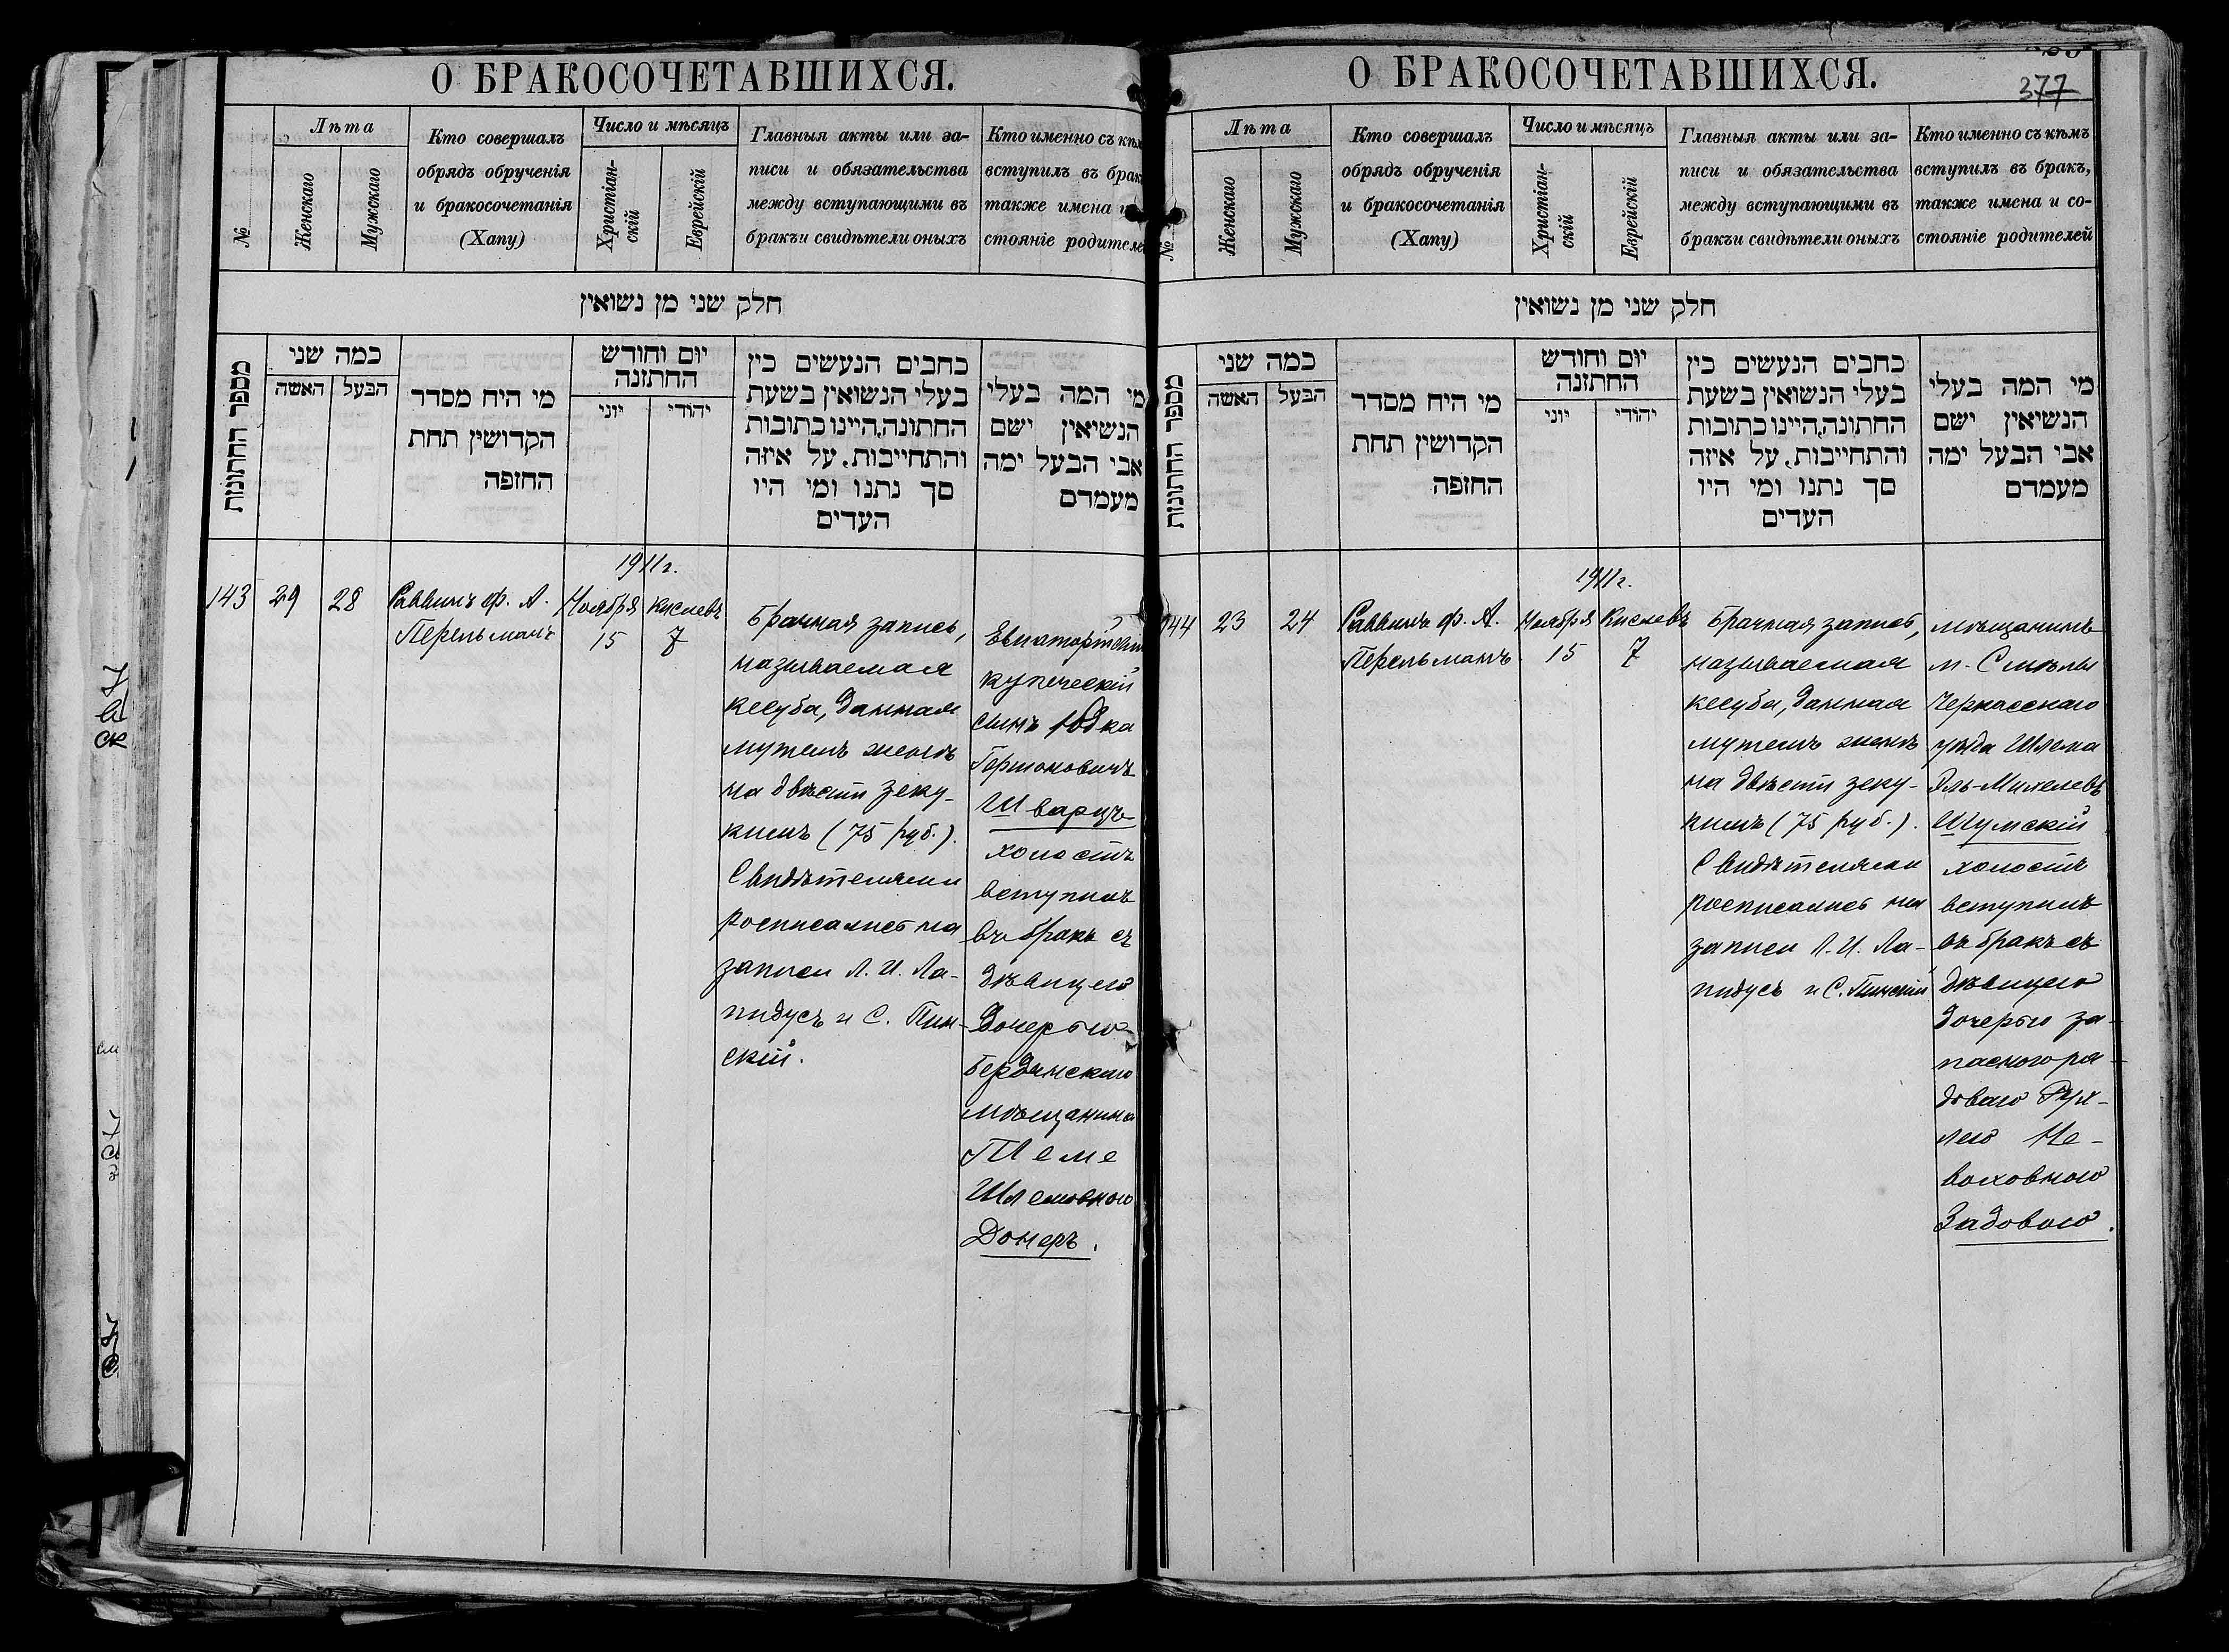 О БРАКОСОЧЕТАВШИХСЯ.
№
Лѣта
Женскаго
Мужскаго
Кто совершалъ
обрядъ обрученія
и бракосочетанія
(Хапу)
Число и мѣсяцъ
Христіан-
скій
Еврейскій
Главныя акты или за-
писи и обязательства
между вступающими въ
бракъи свидѣтели оныхъ
Кто именно съ
вступилъ въ
также имена
стояніе
חלק שני מן נשואין
מספר החתונות
כמה שני
האשה
הבעל
מי היח מסדר
הקדושין תחת
החופה
יום וחודש
החתונה
יוני
יהודי
כחבים הנעשים כין
בעלי הנשואין בשעת
החתונה, היינו כתובות
והתחייבות, על איזה
סך נתנו ומי היו
העדים
מי המה בעלי
הנשיאין ישם
אבי הבעל ימה
מעמדם
1911г.
143
29
28
Раввинъ Ф. А.
Перельманъ
Ноября
15
Кислевъ
7
Брачная запись,
называемая
кесуба, данная
мужемъ женѣ
на двѣсти зеку-
кимъ (75 руб.).
Свидѣтелями
росписались на
записи Л. И. Ла-
пидусъ и С. Пин-
скій.
купеческій
сынъ
Шварцъ
холостъ
вступилъ
въ бракъ съ
дѣвицею
дочерью
Бердянскаго
мѣщанина
Шлемовною
Донеръ.
О БРАКОСОЧЕТАВШИХСЯ.
377
№
Лѣта
Женскаго
Мужскаго
Кто совершалъ
обрядъ обрученія
и бракосочетанія
(Хапу)
Число и мѣсяцъ
Христіан-
скій
Еврейскій
Главныя акты или за-
писи и обязательства
между вступающими въ
бракъи свидѣтели оныхъ
Кто именно съ кѣмъ
вступилъ въ бракъ,
также имена и со-
стояніе родителей
חלק שני מן נשואין
מספר החתונות
כמה שני
האשה
הבעל
מי היח מסדר
הקדושין תחת
החופה
יום וחודש
החתונה
יוני
יהודי
כחבים הנעשים כין
בעלי הנשואין בשעת
החתונה, היינו כתובות
והתחייבות, על איזה
סך נתנו ומי היו
העדים
מי המה בעלי
הנשיאין ישם
אבי הבעל ימה
מעמדם
1911г.
144
23
24
Раввинъ Ф. А.
Перельманъ
Ноября
15
Кислевъ
7
Брачная запись,
называемая
кесуба, данная
мужемъ женѣ
на двѣсти зеку-
кимъ (75 руб.).
Свидѣтелями
росписались на
записи Л. И. Ла-
пидусъ и С. Пинскій
мѣщанинъ
м. Смѣлы
Черкасскаго
уѣзда Шлема
Эль-Михелевъ
Шумскій
холостъ
вступилъ
въ бракъ съ
дѣвицею
дочерью за-
паснаго ря-
доваго Рух-
лею Не-
воховною
Задовою.